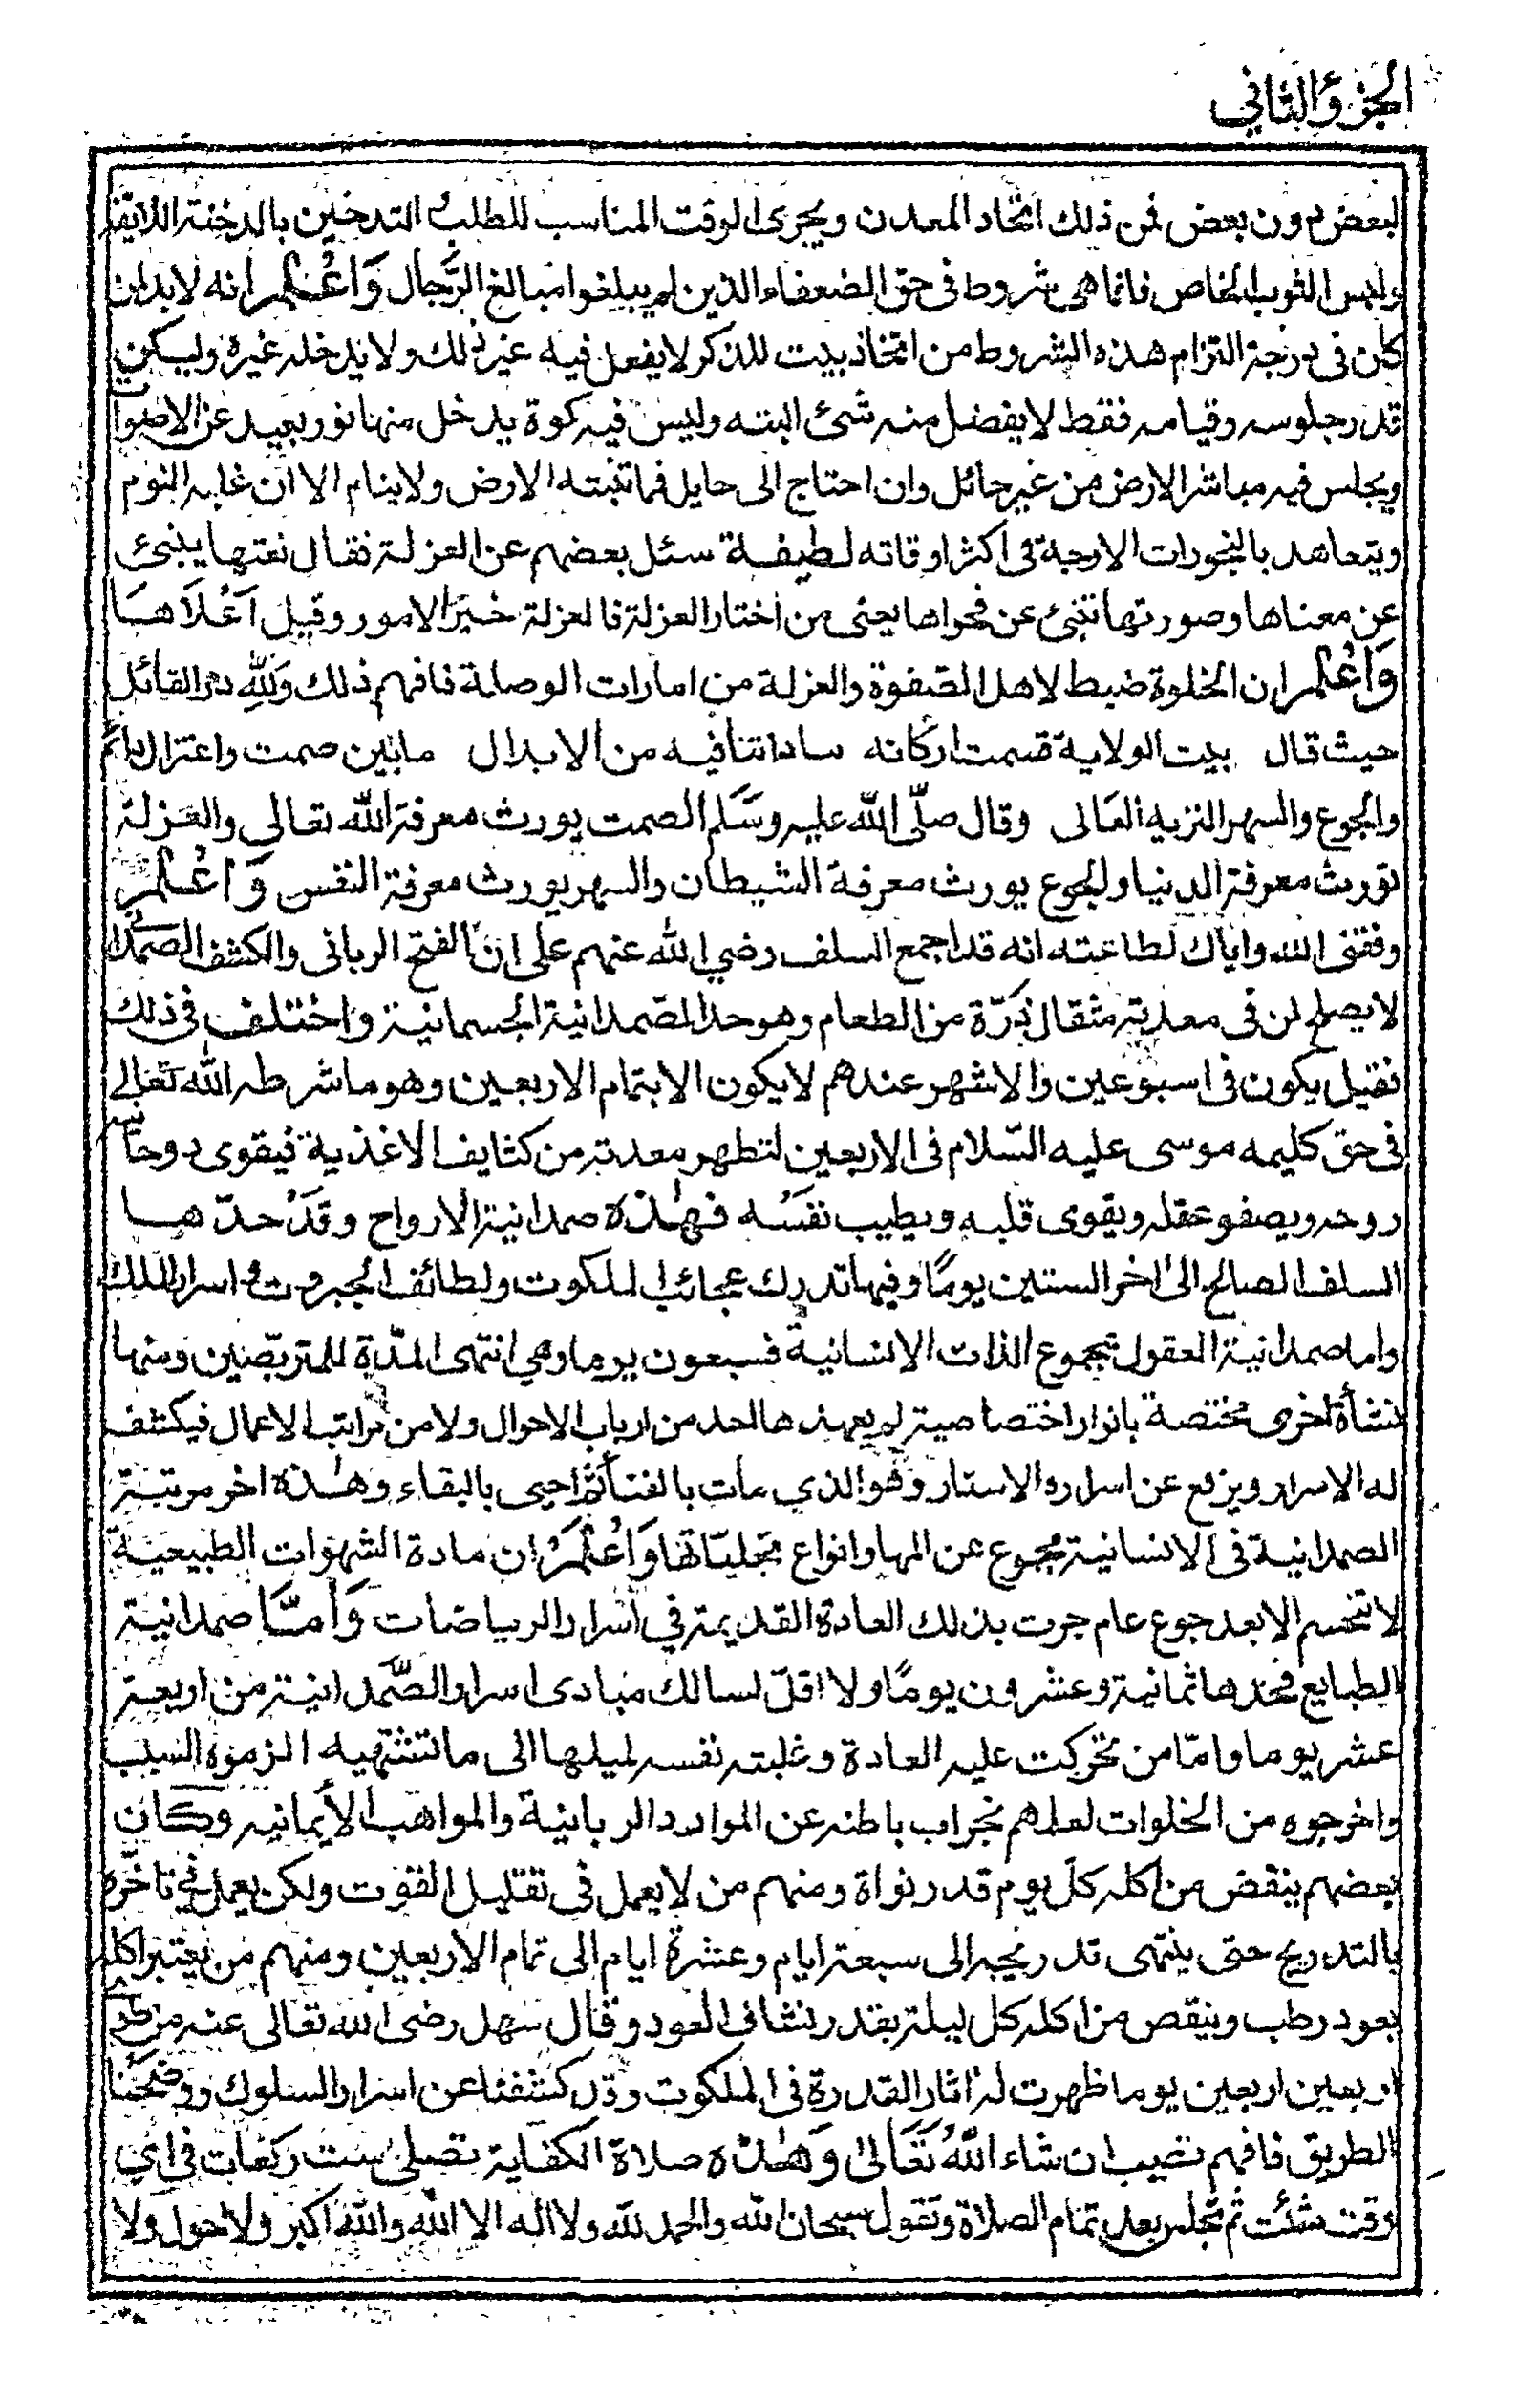 الجزؤ الثاني
لبعض دون بعض فمن ذلك اتخاد المعدن ويجرى الوقت المناسب للطلب التدخين بالدخنة اللايقة
ولبس الثوب الخاص فانما هى شروط فى حق الضعفاء الذين لم يبلغوا مبالغ الرّجال وَاعْلم انه لابد لمن
كان فى درجة التزام هذه الشروط من اتخاذ بيت للذكر لا يفعل فيه غير ذلك ولا يدخله غيره وليكن
قدر جلوسه وقيامه فقط لا يفضل منه شئ البته وليس فيه كوة يدخل منها نور بعيد عن الاصوات
ويجلس فيه مباشر الارض من غير حائل وان احتاج الى حايل فما تنبته الارض ولا ينام الا ان غلبه النوم
ويتعاهد بالبخورات الارجة فى اكثر اوقاته لطيفة سئل بعضهم عن العزلة فقال نعتها ينبئ
عن معناها وصورتها تنبئ عن فحواها يعنى من اختار العزلة فالعزلة خير الامور وقيل اَعْلَاهَا
وَاعْلم ان الخلوة ضبط لاهل الصّفوة والعزلة من امارات الوصلة فافهم ذلك وَلِلّٰهِ در القائل
حيث قال بيت الولاية قسمت اركانه ساداتنا فيه من الابدال مابين صمت واعتزال دائم
والجوع والسهر النزيه العَالى وقال صلّى الله عليه وسَلّم الصمت يورث معرفة الله تعالى والعزلة
تورث معرفة الدنيا والجوع يورث معرفة الشيطان والسهر يورث معرفة النفس وَاعْلم
وفقنى الله واياك لطاعته انه قد اجمع السلف رضي الله عنهم على ان الفتح الربانى والكشف الصمدانى
لا يصلح لمن فى معدته مثقال ذرّة من الطعام وهو حد الصّمدانية الجسمانية واختلف فى ذلك
فقيل يكون فى اسبوعين والاشهر عندهم لا يكون الا بتمام الاربعين وهو ما شرطه الله تعالى
فى حق كليمه موسى عليه السّلام فى الاربعين لتطهر معدته من كثايف الاغذية فيقوى روحانية
روحه ويصفو عقله ويقوى قلبه ويطيب نفسُه فهٰذه صمدانية الارواح وقَدْ حدّها
السلف الصالح الى اخر الستين يومًا وفيها تدرك عجائب الملكوت ولطائف الجبروت و اسرار الملك
واما صمدانية العقول بمجموع الذات الانسانية فسبعون يوما وهي انتهى المدّة للمتربّصين ومنها
نشأة اخرى مختصة بانوار اختصاصية لم يعهدها احد من ارباب الاحوال ولا من مراتب الاعمال فيكشف
له الاسرار ويرفع عن اسراره الاستار وهو الذي مات بالفناء ثم احيى بالبقاء وهٰذه اخر مرتبة
الصمدانية فى الانسانية مجموع عن المها وانواع تجلياتها وَاعْلَمْ ان مادة الشهوات الطبيعية
لا تنحسم الا بعد جوع عام جرت بذلك العادة القديمة في اسرار الرياضات وَأمّا صمدانية
الطبايع فحدها ثمانية وعشرون يومًا ولا اقلّ لسالك مبادى اسرار الصَّمدانية من اربعة
عشر يوما وامّا من تحركت عليه العادة وغلبته نفسه لميلها الى ما تشتهيه الزموه السبب
واخرجوه من الخلوات لعلمهم بخراب باطنه عن الموارد الربانية والمواهب الأيمانيه وكان
بعضهم ينقص من اكله كلّ يوم قدر نواة ومنهم من لا يعمل فى تقليل القوت ولكن يعمل في تاخّره
بالتدريج حتى ينتهى تدريجه الى سبعة ايام وعشرة ايام الى تمام الاربعين ومنهم من يعتبر اكله
بعود رطب وينقص من اكله كل ليلة بقدر نشاف العود وقال سهل رضى الله تعالى عنه من طوى
اربعين اربعين يوما ظهرت له اثار القدرة فى الملكوت وقد كشفنا عن اسرار السلوك ووضحنا
الطريق فافهم تصيب ان شاء اللّهُ تَعَالىٰ وَهٰذه صلاة الكفاية تصلى ست ركعات فى اي
وقت شئت ثم تجلس بعد تمام الصلاة وتقول سبحان الله والحمد لله ولا اله الا الله والله اكبر ولا حول ولا